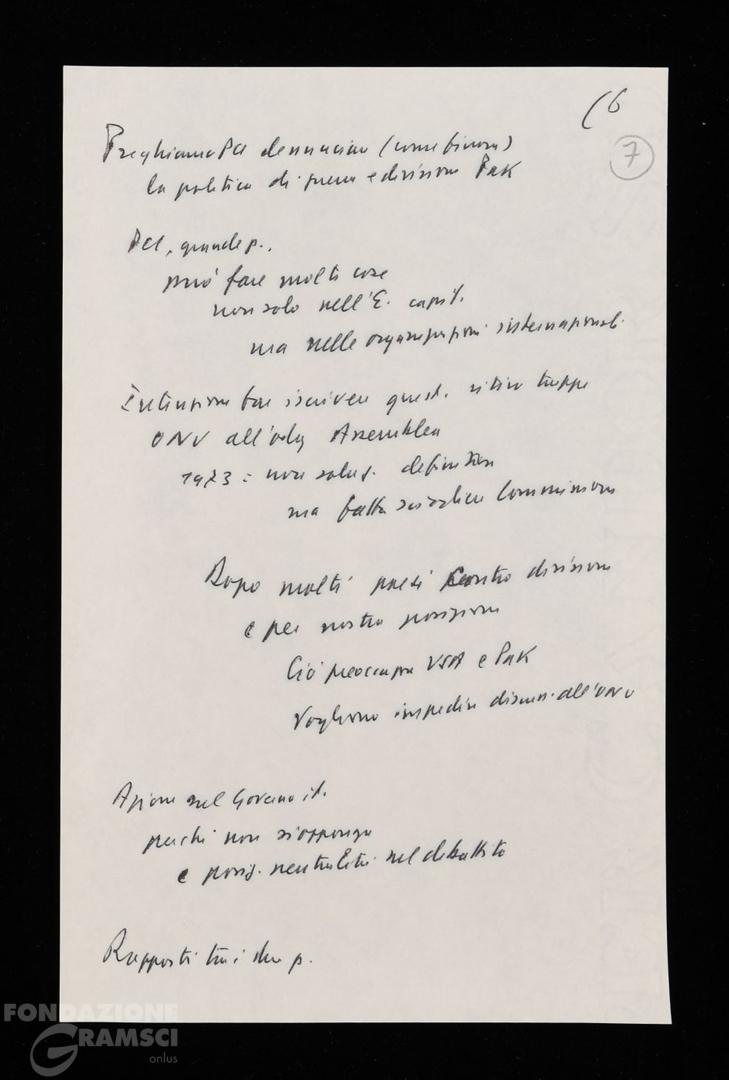 (6
7
Preghiamo PCI denunciare (come finora)
la politica di guerra e divisione Pak
PCI, grande p.,
può fare molte cose
non solo nell'E. capit.
ma nelle organizzazioni internazionali
Intenzione far iscrivere quest. ritiro truppe
ONU all'odg Assemblea
1973 = non soluz. definitiva
ma fatta sciogliere Commissione
Dopo molti paesi contro divisione
e per nostra posizione
Ciò preoccupa USA e Pak
Vogliono impedire discuss. all'ONU
Azione sul Governo it.
perché non si opponga
e posiz. neutralità nel dibattito
Rapporti tra i due p.
FONDAZIONE
GRAMSCI
onlus